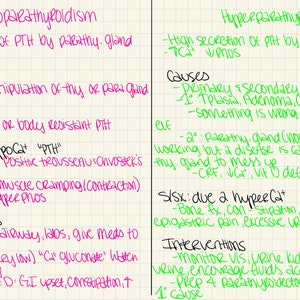 oparathyroidism
of PTH by parathy. gland
nipulation of thy. or para gland
or body resistant PTH
poCa+ "PTH"
positive trousseau & chvostek's
muscle cramping (contraction)
perphos
airway, labs, give meds to
key low) "Ca+ gluconate" watch
D: GI upset, constipation, ↑
Hyperparathy
-High secretion of PTH by
-↑Ca+ ↓phos
Causes
- Primary & secondary
1° ↑Plasia, Adenoma,
- something is wrong
elf
-2°: Parathy. gland (no
working but a disease is ca
thy gland to mess up
-CRF, ↓Ca+, vit D↓
S/Sx: due 2 hyperCa+
-Bone fx, constipation,
epigastric pain, excessive u
Interventions
-Monitor VIS, urine, kid
urine, encourage fluids, ac
-Prep 4 parathyroidecto
1° cause